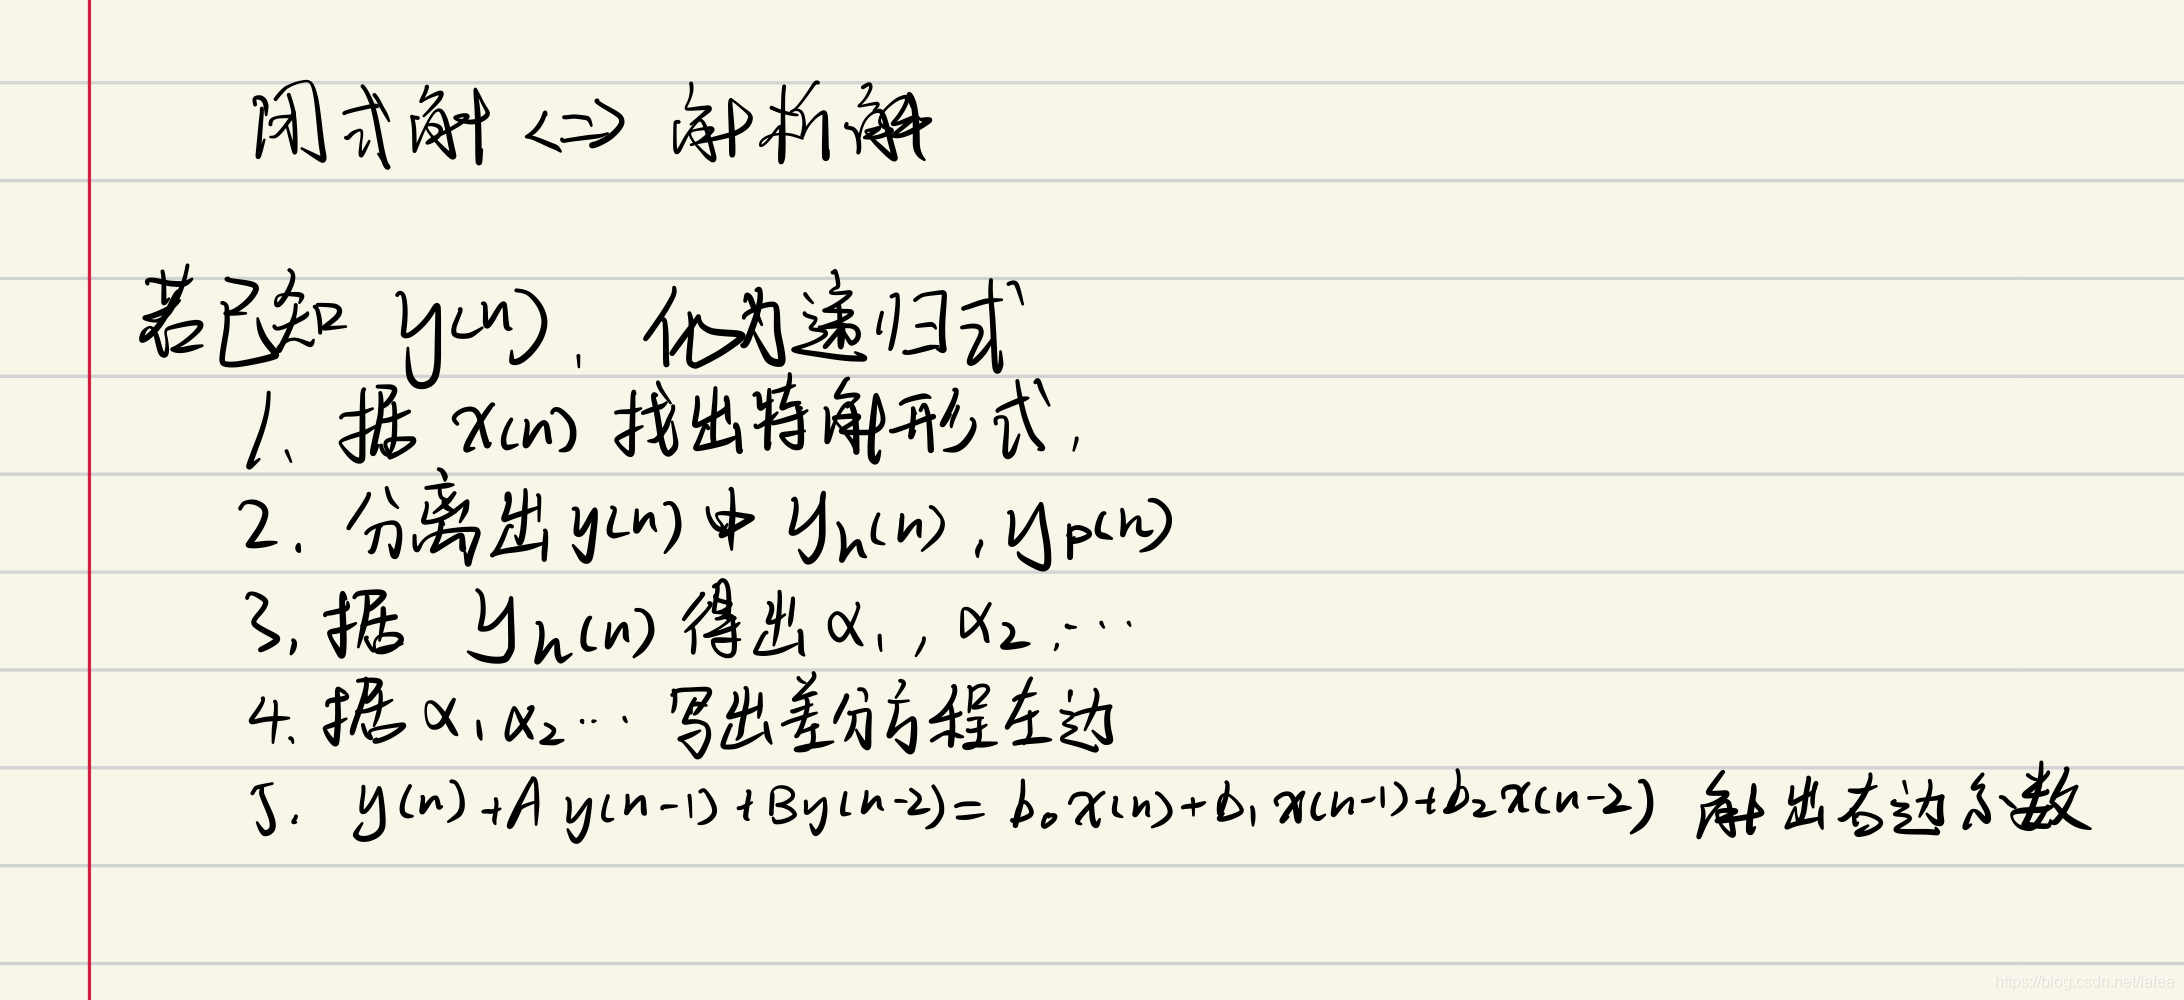 闭式解 <=> 解析解
若已知 y(n), 化为递归式
1、据 x(n) 找出特解形式,
2. 分离出 y(n) 中 yₕ(n), yₚ(n)
3, 据 yₕ(n) 得出 α₁, α₂, ...
4. 据 α₁ α₂ ... 写出差分方程左边
5. y(n)+A y(n-1)+By(n-2)= b₀x(n)+b₁x(n-1)+b₂x(n-2) 解出右边系数
https://blog.csdn.net/lafea